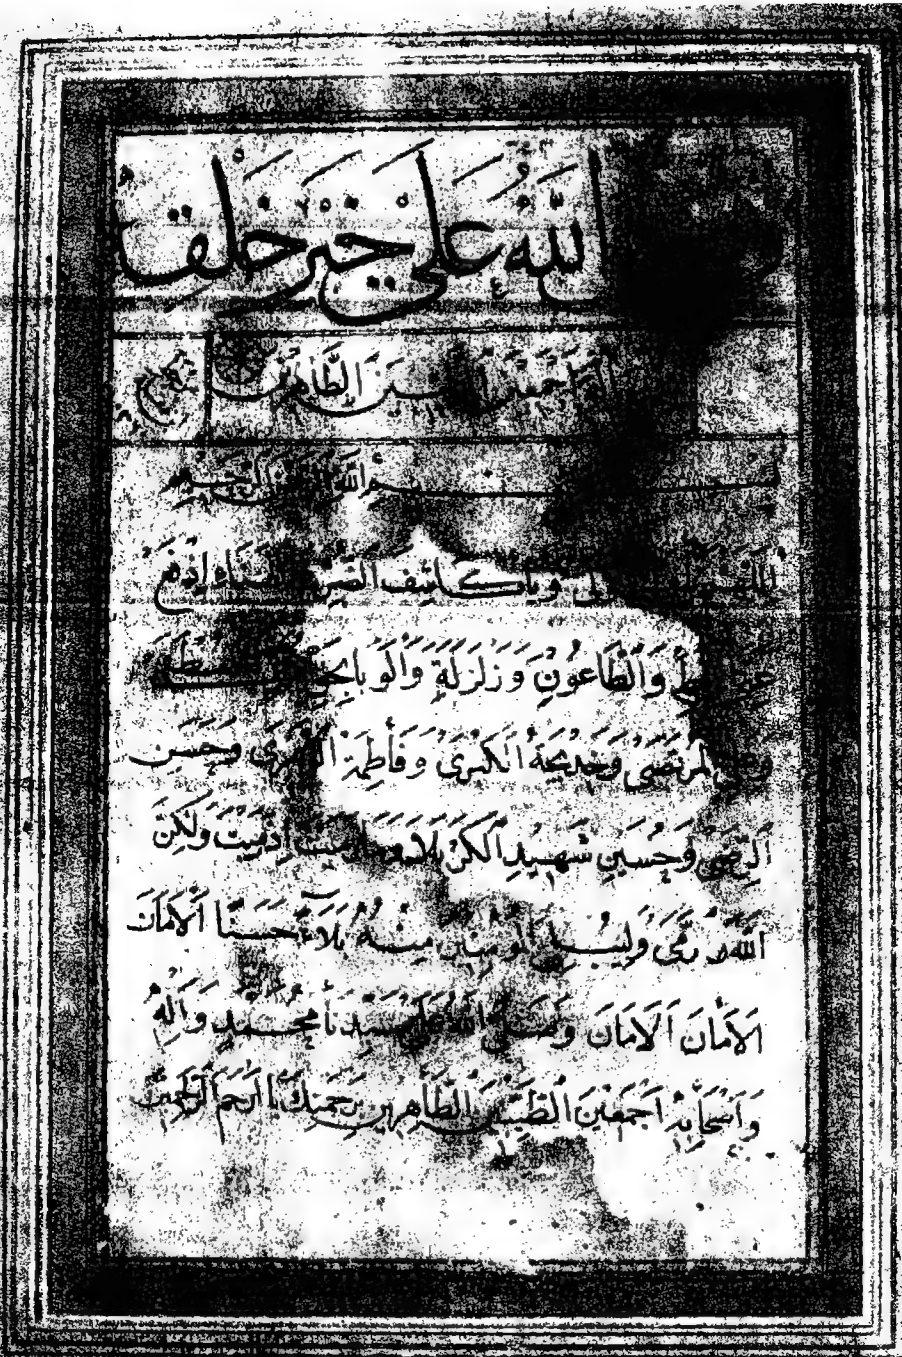 اللّٰهُ عَلٰى خَيْرِ خَلْقِهٖ
اَجْمَعِيْنَ الطَّاهِرِيْنَ
بِسْمِ اللّٰهِ الرَّحْمٰنِ الرَّحِيْمِ
وَيَا كَاشِفَ الضُّرِّ اِدْفَعْ
وَالطَّاعُوْنِ وَزَلْزَلَةٍ وَالْوَبَا بِحَقِّ
الْمُرْتَضٰى وَخَدِيْجَةُ الْكُبْرٰى وَفَاطِمَةِ وَحَسَنِ
الرِّضٰى وَحُسَيْنِ شَهِيْدِ الْكَرْبَلَا رَمَيْتَ اِذْ رَمَيْتَ وَلٰكِنَّ
اللّٰهَ رَمٰى وَلِيُبْلِيَ الْمُؤْمِنِيْنَ مِنْهُ بَلَآءً حَسَنًا اَلْاَمَانَ
اَلْاَمَانَ اَلْاَمَانَ وَصَلَّى اللّٰهُ عَلٰى سَيِّدِنَا مُحَمَّدٍ وَاٰلِهٖ
وَاَصْحَابِهٖ اَجْمَعِيْنَ الطَّيِّبِيْنَ الطَّاهِرِيْنَ بِرَحْمَتِكَ يَا اَرْحَمَ الرَّاحِمِيْنَ